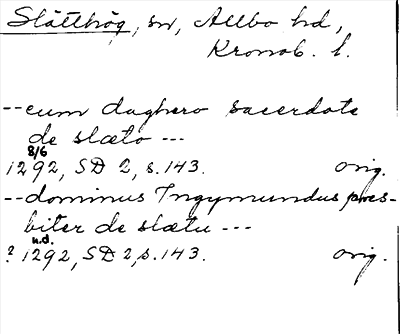 Slätthög, sn, Allbo hd,
Kronob. l.
-- cum daghero sacerdote
de slæto ---
8/6
1292, SD 2, s. 143. orig.
-- dominus Ingymundus pres-
biter de slætu ---
u.d.
? 1292, SD 2, s. 143. orig.